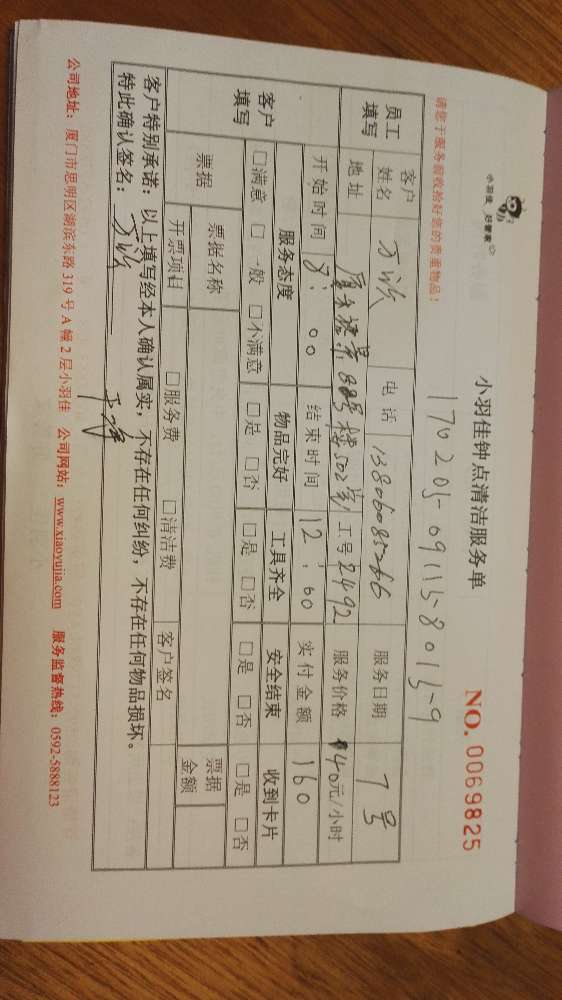 小羽佳 好管家
小羽佳钟点清洁服务单
NO. 0069825
请您于服务前收拾好您的贵重物品!
员工填写 客户姓名 电话 13806085266 服务日期 7号
地址 88号楼502室 工号 2492 服务价格 40元/小时
开始时间 8:00 结束时间 12:00 实付金额 160
客户填写 服务态度 物品完好 工具齐全 安全结束 收到卡片
□满意 □一般 □不满意 □是 □否 □是 □否 □是 □否 □是 □否
票据 票据名称 票据金额
开票项目 □服务费 □清洁费 客户签名
客户特别承诺:以上填写经本人确认属实,不存在任何纠纷,不存在任何物品损坏。
特此确认签名:
公司地址:厦门市思明区湖滨东路 319 号 A 幢 2 层小羽佳 公司网站:www.xiaoyujia.com 服务监督热线:0592-5888123